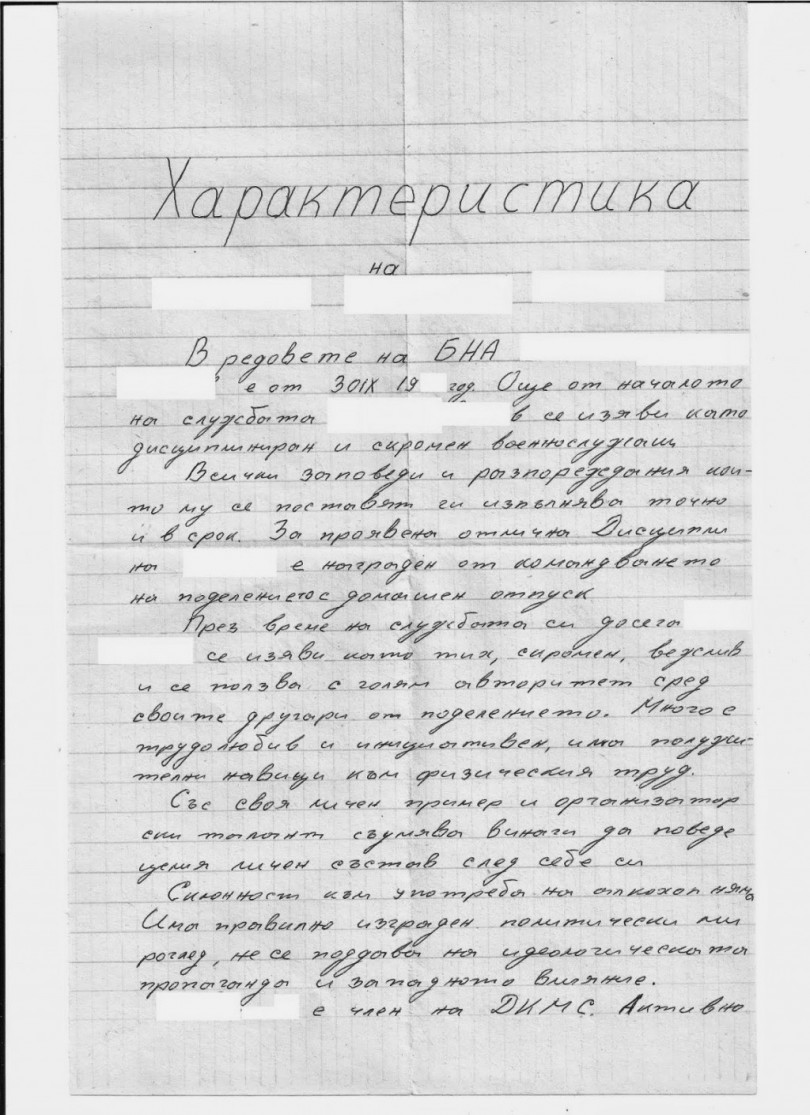 Характеристика
на
В редовете на БНА
е от 30 IX 19 год. Още от началото
на службата в се изяви като
дисциплиниран и скромен военнослужащ
Всички заповеди и разпореждания кои-
то му се поставят ги изпълнява точно
и в срок. За проявена отлична Дисципли
на е награден от командването
на поделението с домашен отпуск
През време на службата си досега
се изяви като тих, скромен, вежлив
и се ползва с голям авторитет сред
своите другари от поделението. Много е
трудолюбив и инициативен, има
навици към физическия труд.
Със своя личен пример и организатор
ски талант съумява винаги да поведе
целия личен състав след себе си
Склонност към употреба на алкохол няма
Има правилно изграден политически ми
роглед, не се поддава на идеологическата
пропаганда и западното влияние.
е член на ДКМС. Активно